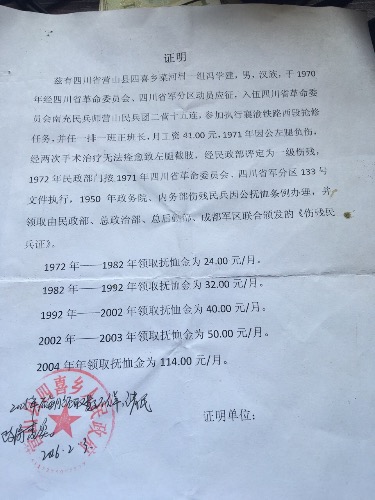 证明
兹有四川省营山县四喜乡菜河村一组冯学建,男、汉族,于1970
年经四川省革命委员会、四川省军分区动员应征,入伍四川省革命委
员会南充民兵师营山民兵团二营十五连,参加执行襄渝铁路西段抢修
任务,并任一排一班正班长,月工资41.00元,1971年因公左腿负伤,
经两次手术治疗无法痊愈致左腿截肢,经民政部评定为一级伤残,
1972年民政部门按1971年四川省革命委员会、四川省军分区133号
文件执行,1950年政务院、内务部伤残民兵因公抚恤条例办理,并
领取由民政部、总政治部、总后勤部、成都军区联合颁发的《伤残民
兵证》。
1972年——1982年领取抚恤金为24.00元/月。
1982年——1992年领取抚恤金为32.00元/月。
1992年——2002年领取抚恤金为40.00元/月。
2002年——2003年领取抚恤金为50.00元/月。
2004年年领取抚恤金为114.00元/月。
四喜乡人民政府
证明单位: